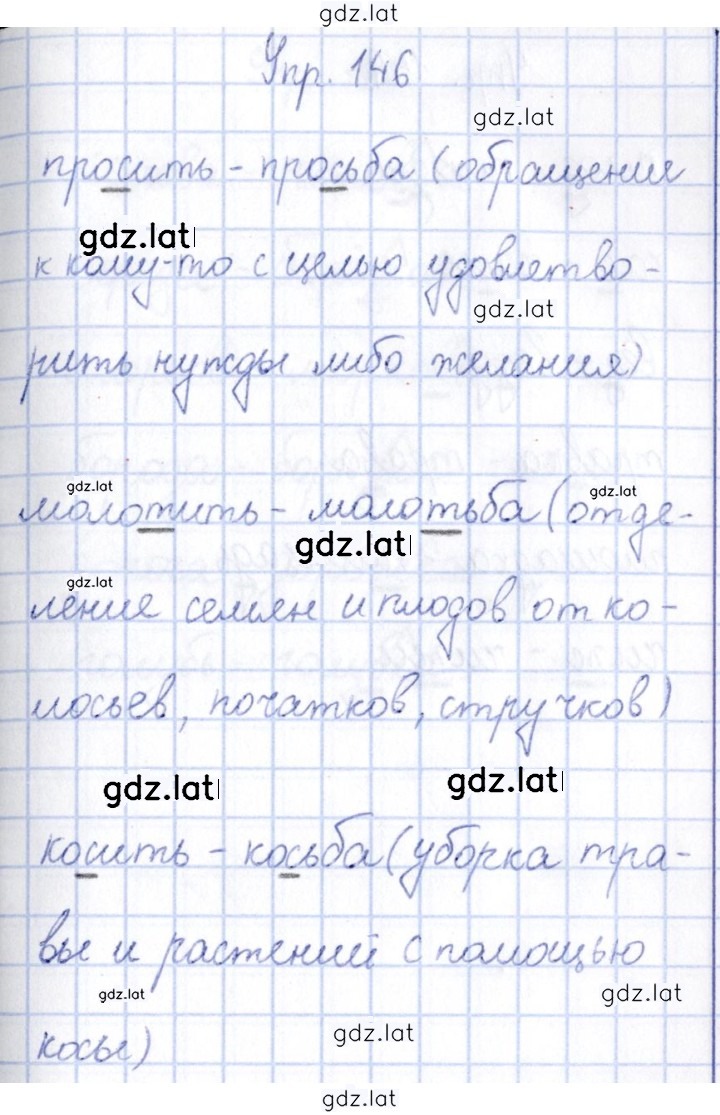 gdz.lat
Упр. 146
gdz.lat
просить - просьба (обращение
gdz.lat
к кому-то с целью удовлетво-
gdz.lat
рить нужды либо желания)
gdz.lat
gdz.lat
молотить - молотьба (отде-
gdz.lat
gdz.lat
ление семян и плодов от ко-
лосьев, початков, стручков)
gdz.lat
gdz.lat
косить - косьба (уборка тра-
вы и растений с помощью
gdz.lat
gdz.lat
косы)
gdz.lat
gdz.lat